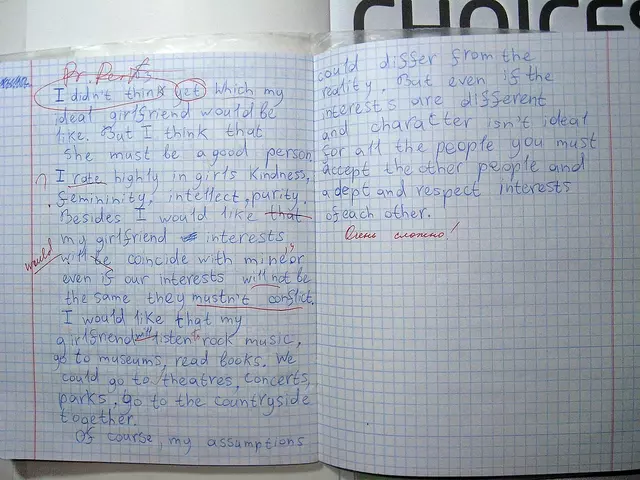 CHOICES
Pr. Perf.
I didn't think yet which my
ideal girlfriend would be
like. But I think that
she must be a good person
I rate highly in girls kindness,
femininity, intellect, purity.
Besides I would like that
my girlfriend interests
would
will be coincide with mine's or
even if our interests will not be
the same they mustn't conflict.
I would like that my
girlfriend will listen to rock music,
go to museums, read books. We
could go to theatres, concerts,
parks, go to the countryside
together.
Of course, my assumptions
could differ from the
reality. But even if the
interests are different
and charatter isn't ideal
for all the people you must
accept the other people and
adept and respect interests
of each other.
Очень сложно!